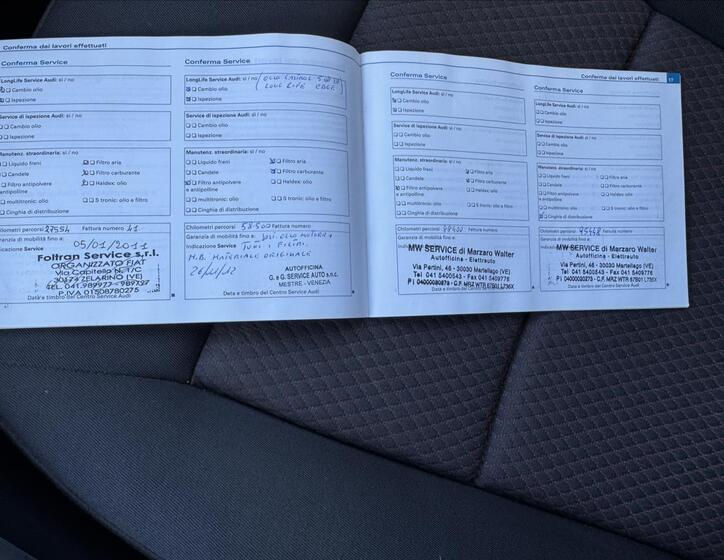 Conferma dei lavori effettuati
Conferma Service
LongLife Service Audi: sì / no
Cambio olio
Ispezione
Service di ispezione Audi: sì / no
Cambio olio
Ispezione
Manutenz. straordinaria: sì / no
Liquido freni
Filtro aria
Candele
Filtro carburante
Filtro antipolvere
e antipolline
Haldex: olio
multitronic: olio
S tronic: olio e filtro
Cinghia di distribuzione
Chilometri percorsi 27554 Fattura numero 41
Garanzia di mobilità fino a:
05/01/2011
Indicazione Service
Foltran Service s.r.l.
ORGANIZZATO FIAT
Via Capitello N. 1/C
30174 ZELARINO (VE)
TEL. 041.989977 - 989727
P.IVA 01508780275
Data e timbro del Centro Service Audi
Conferma Service
LongLife Service Audi: sì / no
Cambio olio
Ispezione
Service di ispezione Audi: sì / no
Cambio olio
Ispezione
Manutenz. straordinaria: sì / no
Liquido freni
Filtro aria
Candele
Filtro carburante
Filtro antipolvere
e antipolline
Haldex: olio
multitronic: olio
S tronic: olio e filtro
Cinghia di distribuzione
Chilometri percorsi 58.500 Fattura numero
Garanzia di mobilità fino a:
Indicazione Service
N.B. MATERIALE ORIGINALE
AUTOFFICINA
G. e G. SERVICE AUTO s.n.c.
MESTRE - VENEZIA
Data e timbro del Centro Service Audi
Conferma Service
LongLife Service Audi: sì / no
Cambio olio
Ispezione
Service di ispezione Audi: sì / no
Cambio olio
Ispezione
Manutenz. straordinaria: sì / no
Liquido freni
Filtro aria
Candele
Filtro carburante
Filtro antipolvere
e antipolline
Haldex: olio
multitronic: olio
S tronic: olio e filtro
Cinghia di distribuzione
Chilometri percorsi Fattura numero
Garanzia di mobilità fino a:
Indicazione Service
MW SERVICE di Marzaro Walter
Autofficina - Elettrauto
Via Pertini, 46 - 30030 Martellago (VE)
Tel 041 5400543 - Fax 041 5409776
Data e timbro del Centro Service Audi
Conferma dei lavori effettuati
17
Conferma Service
LongLife Service Audi: sì / no
Cambio olio
Ispezione
Service di ispezione Audi: sì / no
Cambio olio
Ispezione
Manutenz. straordinaria: sì / no
Liquido freni
Filtro aria
Candele
Filtro carburante
Filtro antipolvere
e antipolline
Haldex: olio
multitronic: olio
S tronic: olio e filtro
Cinghia di distribuzione
Chilometri percorsi Fattura numero
Garanzia di mobilità fino a:
Indicazione Service
MW SERVICE di Marzaro Walter
Autofficina - Elettrauto
Via Pertini, 46 - 30030 Martellago (VE)
Tel 041 5400543 - Fax 041 5409776
Data e timbro del Centro Service Audi